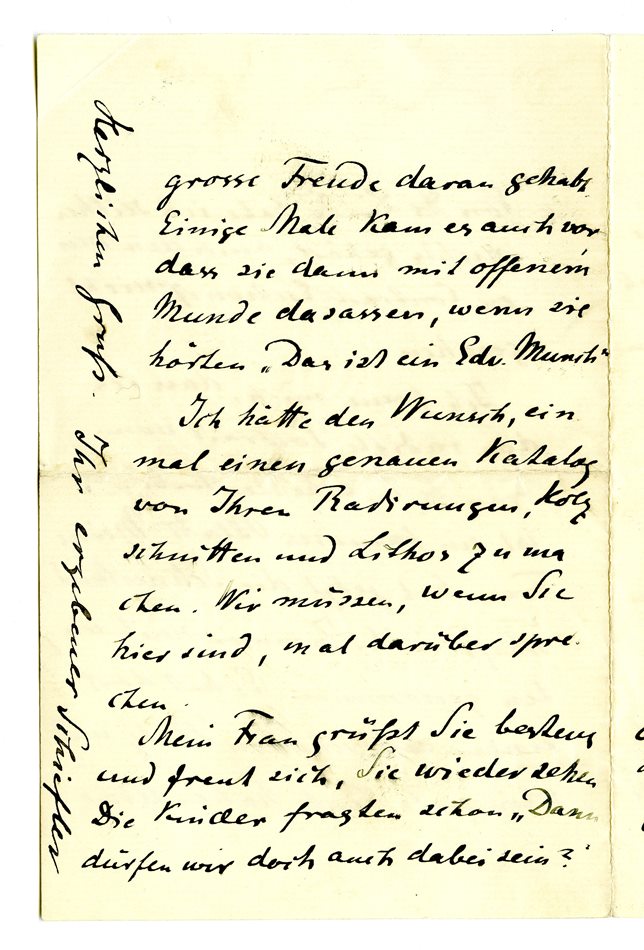 grosse Freude daran gehabt.
Einige Male kam es auch vor
dass sie dann mit offenem
Munde dasassen, wenn sie
hörten „Das ist ein Edv. Munch“
Ich hätte den Wunsch, ein
mal einen genauen Katalog
von Ihren Radirungen, Holz
schnitten und Lithos zu ma
chen. Wir müssen, wenn Sie
hier sind, mal darüber spre
chen.
Mein Frau grüßt Sie bestens
und freut sich, Sie wiederzusehen
Die Kinder fragten schon „Dann
dürfen wir doch auch dabei sein?“
Herzlichen Gruß. Ihr ergebener Schiefler